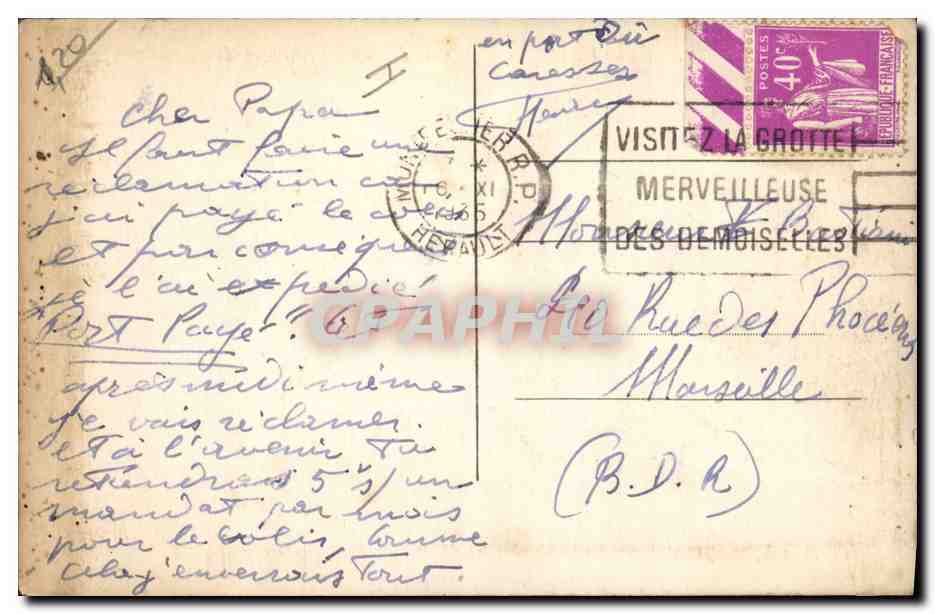 1,20
en port dû
Caresses
Cher Papa
Il faut faire une
réclamation car
j'ai payé le
et par conséque
je l'ai expédié
Port Payé
après midi même
je vais réclamer.
et à l'avenir Tu
retiendras 5 un
mandat par mois
pour le colis, Comme
cela j'enverrais Tout.
MONTPELLIER R.P.
6 XI
1935
HERAULT
VISITEZ LA GROTTE
MERVEILLEUSE
DES DEMOISELLES
POSTES
40c
REPUBLIQUE-FRANÇAISE
Monsieur
Rue des Phocéens
Marseille
(B.D.R)
CPAPHIL